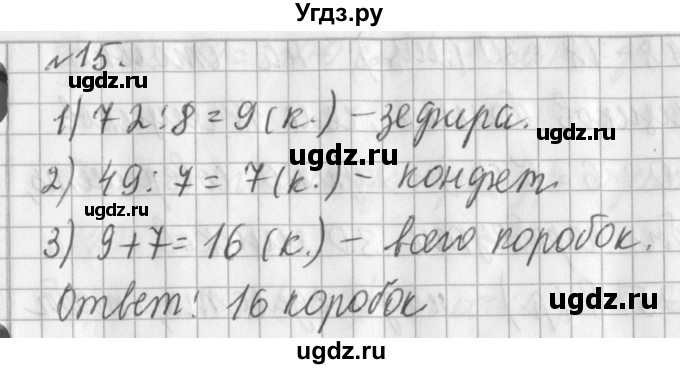 Угдз.ру
№15.
ugdz.ru ugdz.ru
1) 72:8=9(к.) – зефира.
ugdz.ru ugdz.ru
2) 49:7=7(к.) – конфет.
ugdz.ru ugdz.ru
3) 9+7=16 (к.) – всего коробок.
Ответ: 16 коробок
ugdz.ru ugdz.ru
ugdz.ru